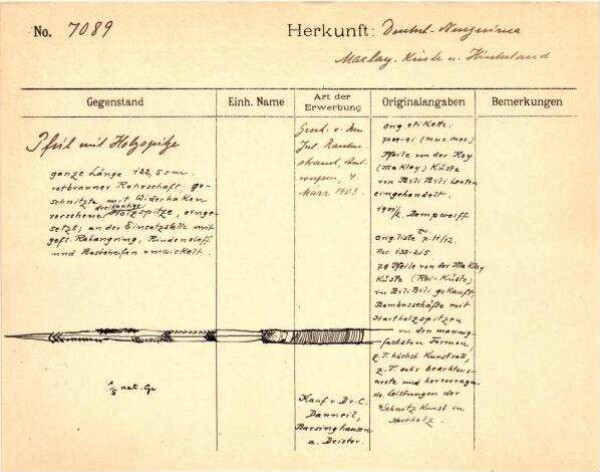 No. 7089
Herkunft: Deutsch-Neuguinea
Maclay-Küste u. Hinterland
Gegenstand
Einh. Name
Art der Erwerbung
Originalangaben
Bemerkungen
Pfeil mit Holzspitze
ganze Länge 122,5 cm.
rotbrauner Rohrschaft; ge-
schnitzte mit Widerhaken
versehene dreikantige Holzspitze, einge-
setzt; an der Einsatzstelle mit
gefl. Rotangring, Rindenstoff
und Baststreifen umwickelt.
nat. Gr.
Gesch. v. den
März 1909.
Kauf v. Dr. C.
Barsinghausen
a. Deister.
Orig. etikette:
Pfeile von der Rey
(Maklay) Küste
von Bili Bili Leuten
eingehandelt.
Orig. liste
Nr. 138-215
78 Pfeile von der Maklay
Küste (Rai-Küste)
von Bili Bili gekauft.
Bambusschäfte mit
Hartholzspitzen
in den mannig-
fachsten Formen,
z. T. höchst kunstvoll,
z. T. sehr beachtens-
werte und hervorragen-
de Leistungen der
Schnitz Kunst in
Hartholz.